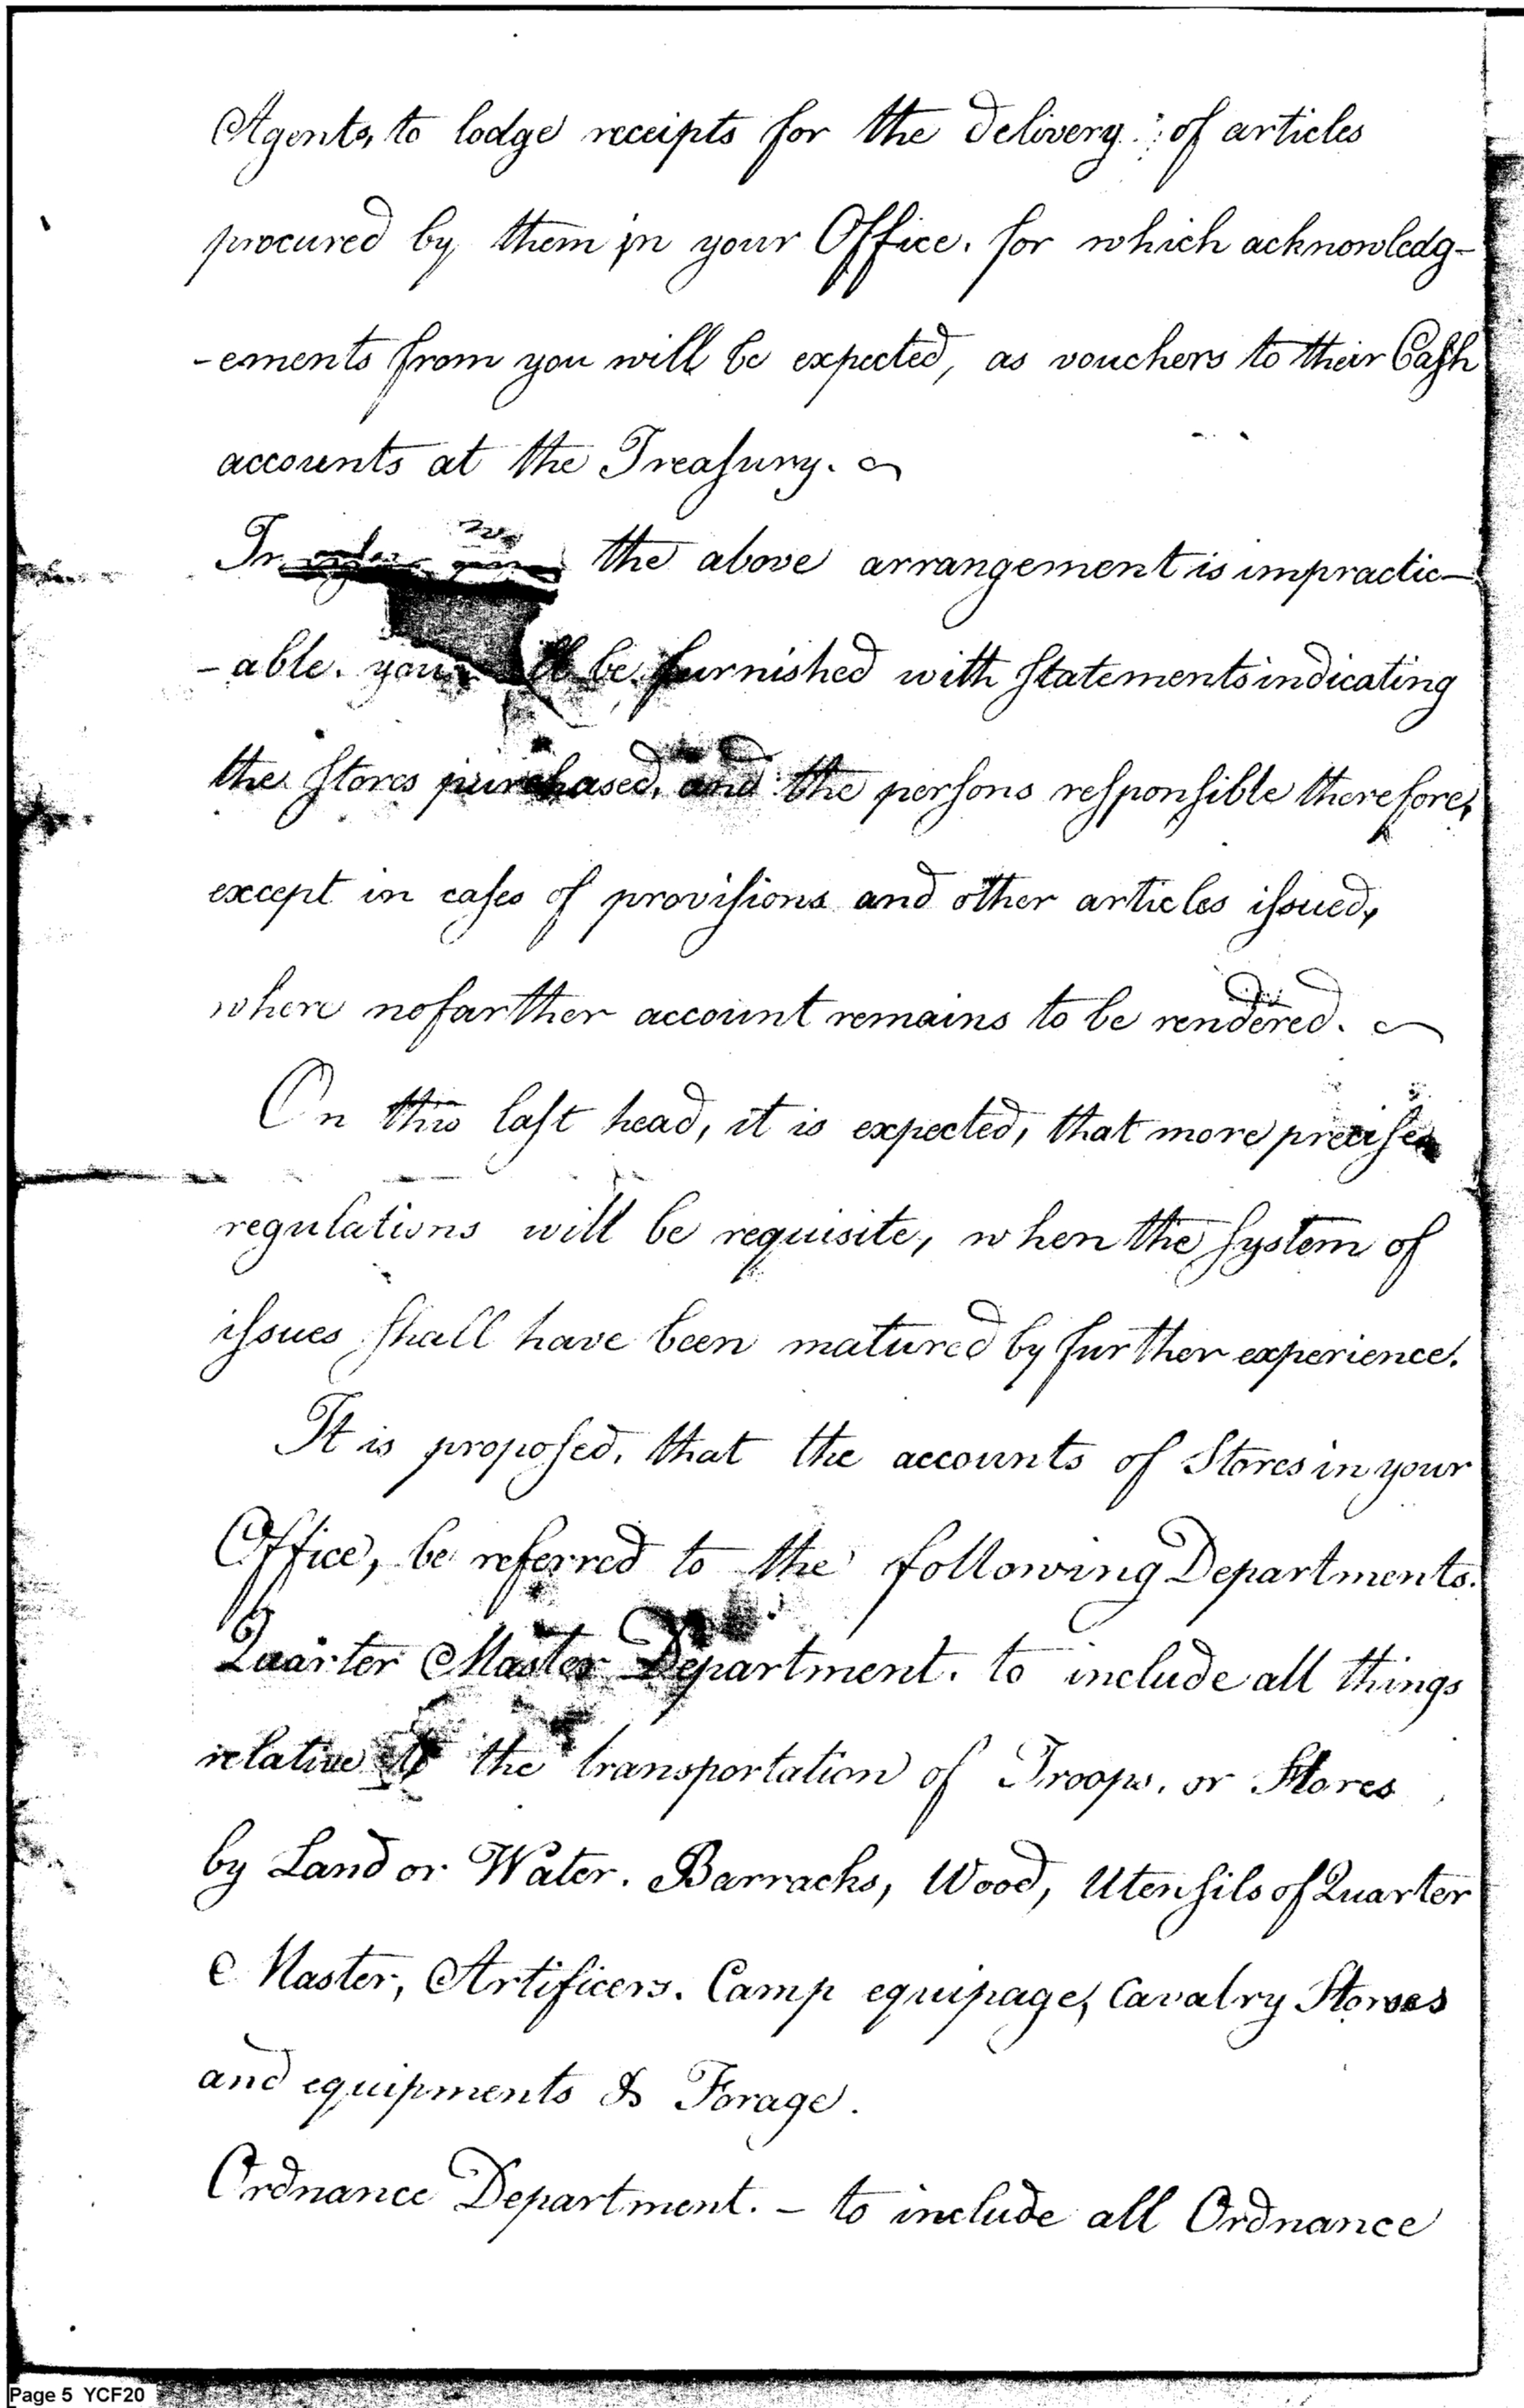 Agents, to lodge receipts for the delivery of articles
procured by them in your Office. for which acknowledg-
-ements from you will be expected, as vouchers to their Cash
accounts at the Treasury.
In the above arrangement is impractic-
-able. you be furnished with Statements indicating
the Stores purchased, and the persons responsible therefore,
except in cases of provisions and other articles issued,
where no farther account remains to be rendered.
On this last head, it is expected, that more precise
regulations will be requisite, when the System of
issues shall have been matured by further experience.
It is proposed, that the accounts of Stores in your
Office, be referred to the following Departments.
Quarter Master Department. to include all things
relative to the transportation of Troops, or Stores
by Land or Water. Barracks, Wood, Utensils of Quarter
Master, Artificers. Camp equipage, Cavalry Stores
and equipments & Forage.
Ordnance Department. - to include all Ordnance
Page 5 YCF20